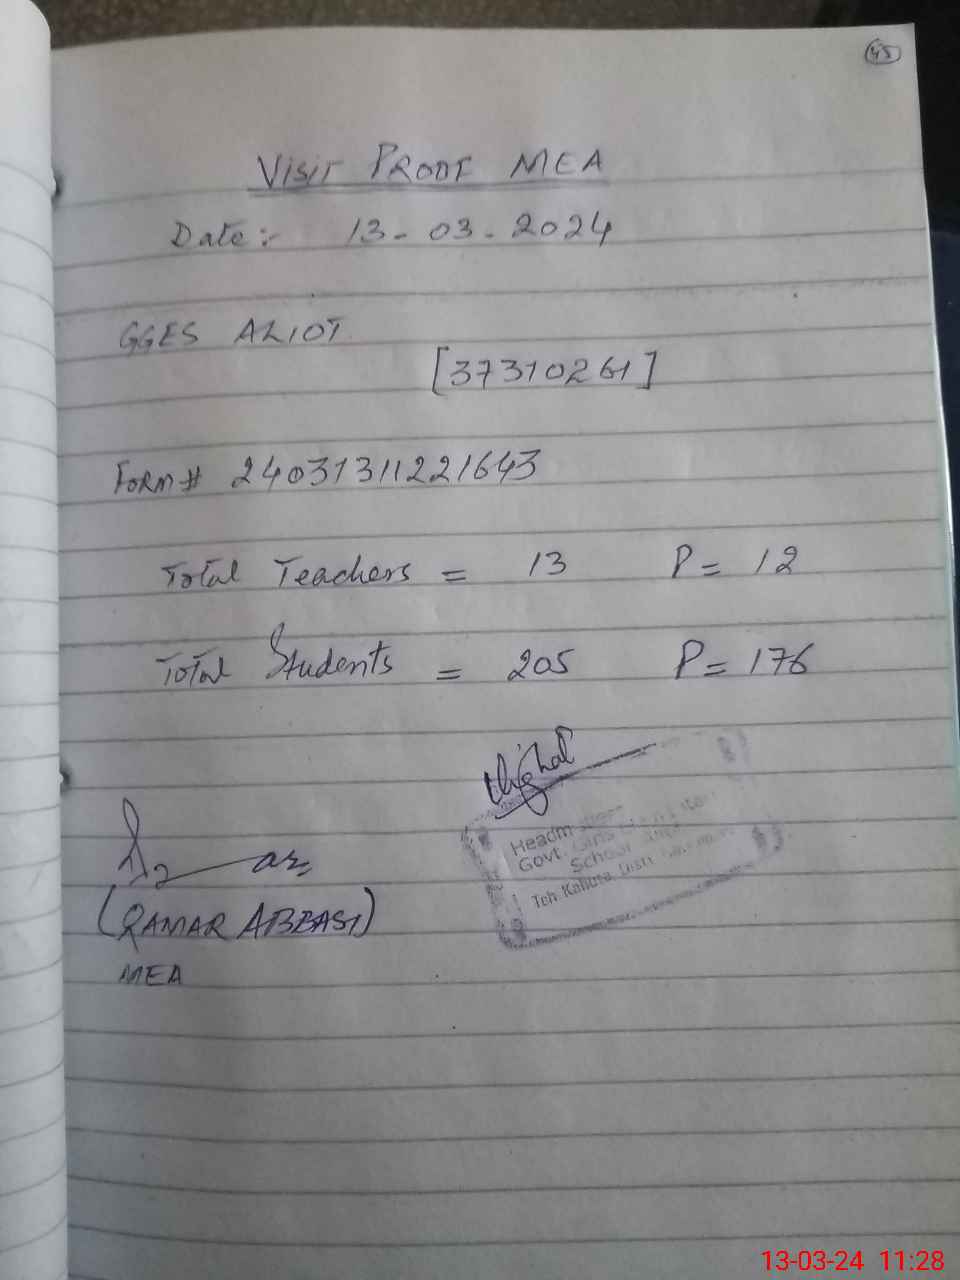 45
Visit PROOF MEA
Date:- 13-03-2024
GGES ALIOT
[37310261]
FORM# 24031311221643
Total Teachers = 13 P= 12
Total Students = 205 P= 176
Headm
Govt. Girls
School
Teh Kahuta, Distt
(QAMAR ABBASI)
MEA
13-03-24 11:28